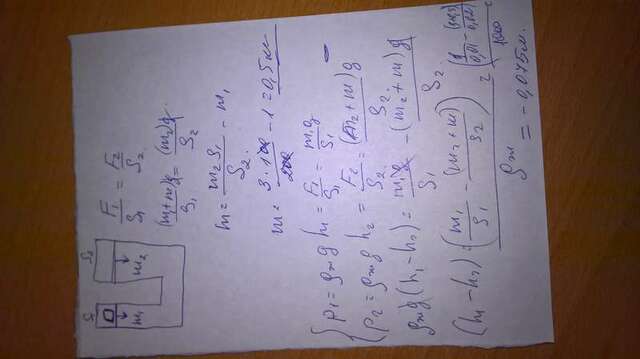 S₁ S₂
m₁ m₂
F₁/S₁ = F₂/S₂
(m₁+m)g/S₁ = (m₂)g/S₂
m = m₂S₁/S₂ - m₁
m = 3·100/200 - 1 = 0,5 кг
P₁ = ρжg h₁ = F₁/S₁ = m₁g/S₁
P₂ = ρжg h₂ = F₂/S₂ = (m₂+m)g/S₂
ρжg(h₁-h₂) = m₁g/S₁ - (m₂+m)g/S₂
(h₁-h₂) = (m₁/S₁ - (m₂+m)/S₂)/ρж =
= -0,075м.